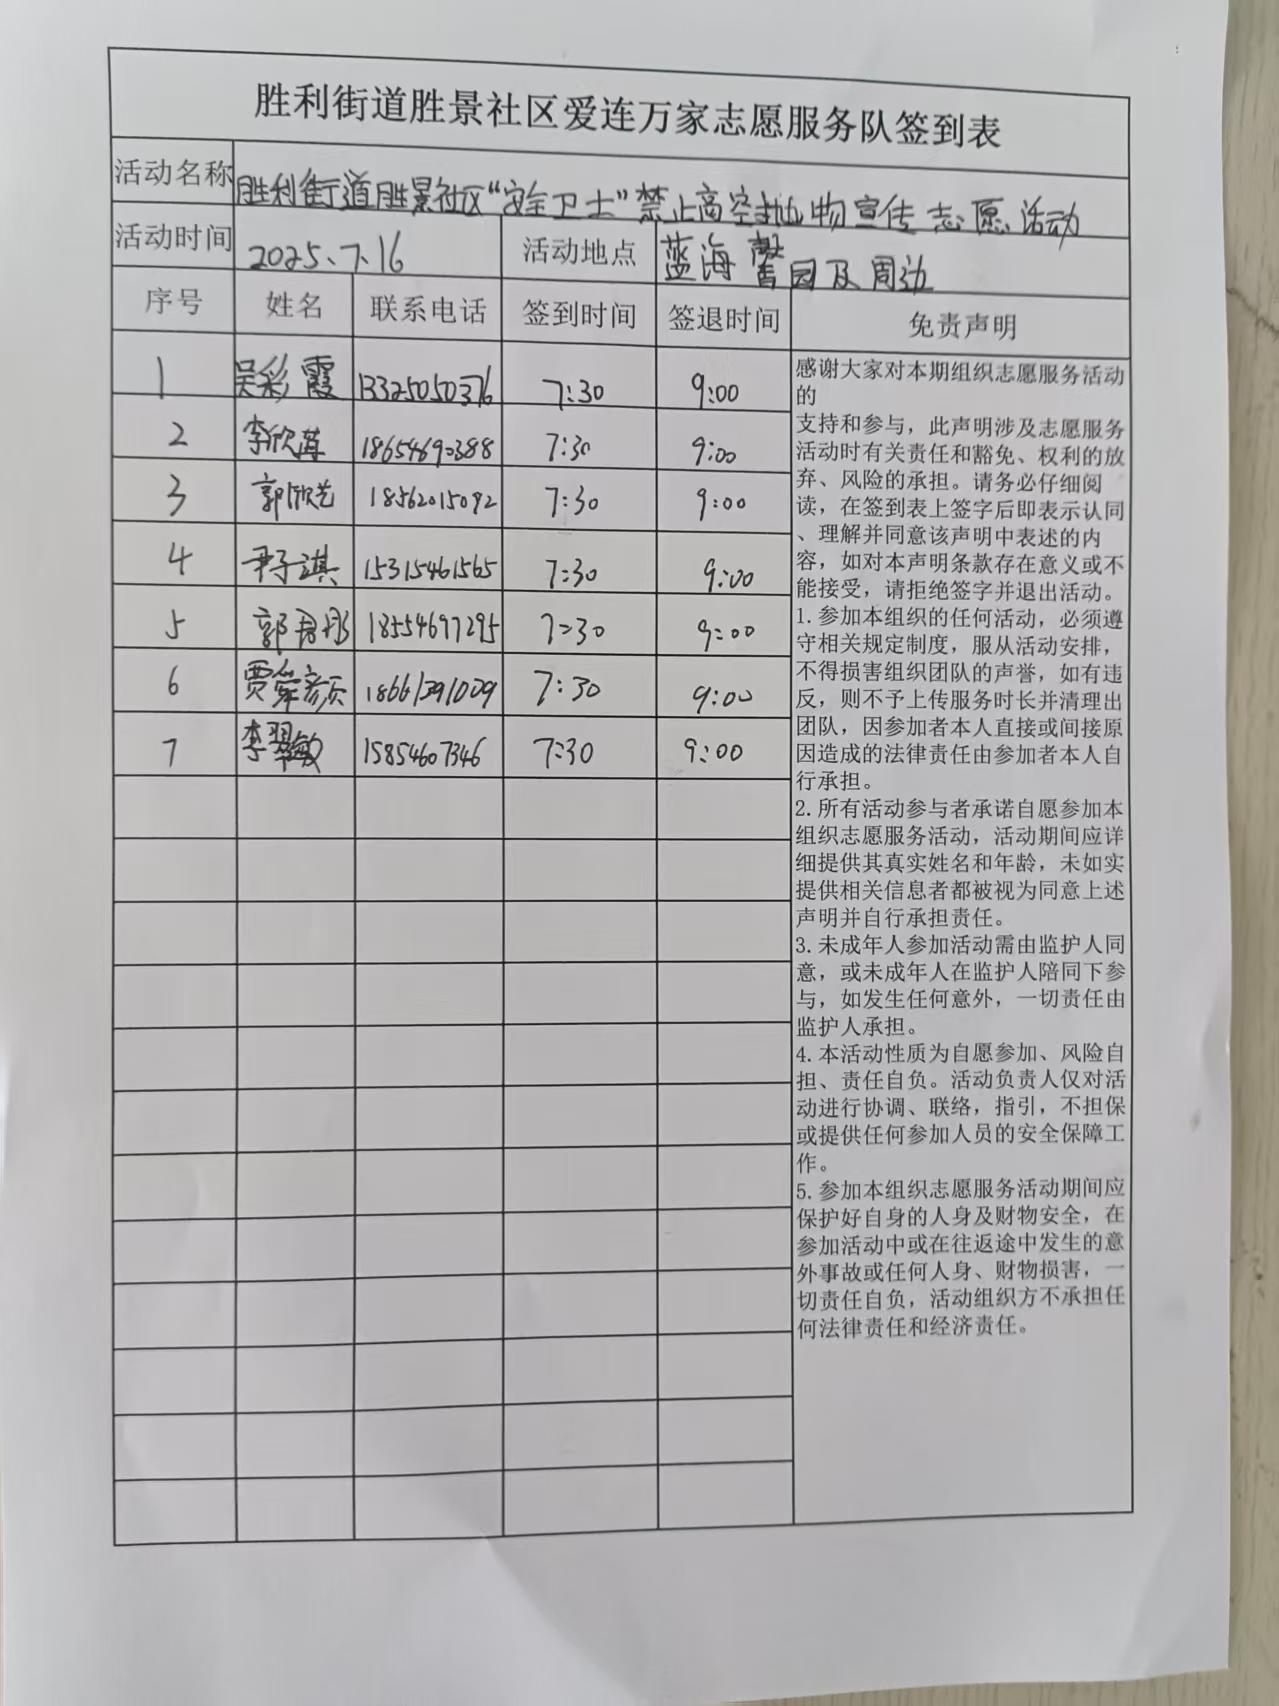 胜利街道胜景社区爱连万家志愿服务队签到表
活动名称 胜利街道胜景社区“安全卫士”禁止高空抛物宣传志愿活动
活动时间 2025.7.16 活动地点 蓝海馨园及周边
序号 姓名 联系电话 签到时间 签退时间 免责声明
1 吴彩霞 13325050376 7:30 9:00
2 李欣 18654690388 7:30 9:00
3 郭欣艺 18562015092 7:30 9:00
4 尹子淇 15315461565 7:30 9:00
5 郭君彤 18554697295 7:30 9:00
6 贾 18661391009 7:30 9:00
7 李翠敏 15854607346 7:30 9:00
感谢大家对本期组织志愿服务活动
的
支持和参与，此声明涉及志愿服务
活动时有关责任和豁免、权利的放
弃、风险的承担。请务必仔细阅
读，在签到表上签字后即表示认同
、理解并同意该声明中表述的内
容，如对本声明条款存在意义或不
能接受，请拒绝签字并退出活动。
1.参加本组织的任何活动，必须遵
守相关规定制度，服从活动安排，
不得损害组织团队的声誉，如有违
反，则不予上传服务时长并清理出
团队，因参加者本人直接或间接原
因造成的法律责任由参加者本人自
行承担。
2.所有活动参与者承诺自愿参加本
组织志愿服务活动，活动期间应详
细提供其真实姓名和年龄，未如实
提供相关信息者都被视为同意上述
声明并自行承担责任。
3.未成年人参加活动需由监护人同
意，或未成年人在监护人陪同下参
与，如发生任何意外，一切责任由
监护人承担。
4.本活动性质为自愿参加、风险自
担、责任自负。活动负责人仅对活
动进行协调、联络，指引，不担保
或提供任何参加人员的安全保障工
作。
5.参加本组织志愿服务活动期间应
保护好自身的人身及财物安全，在
参加活动中或在往返途中发生的意
外事故或任何人身、财物损害，一
切责任自负，活动组织方不承担任
何法律责任和经济责任。